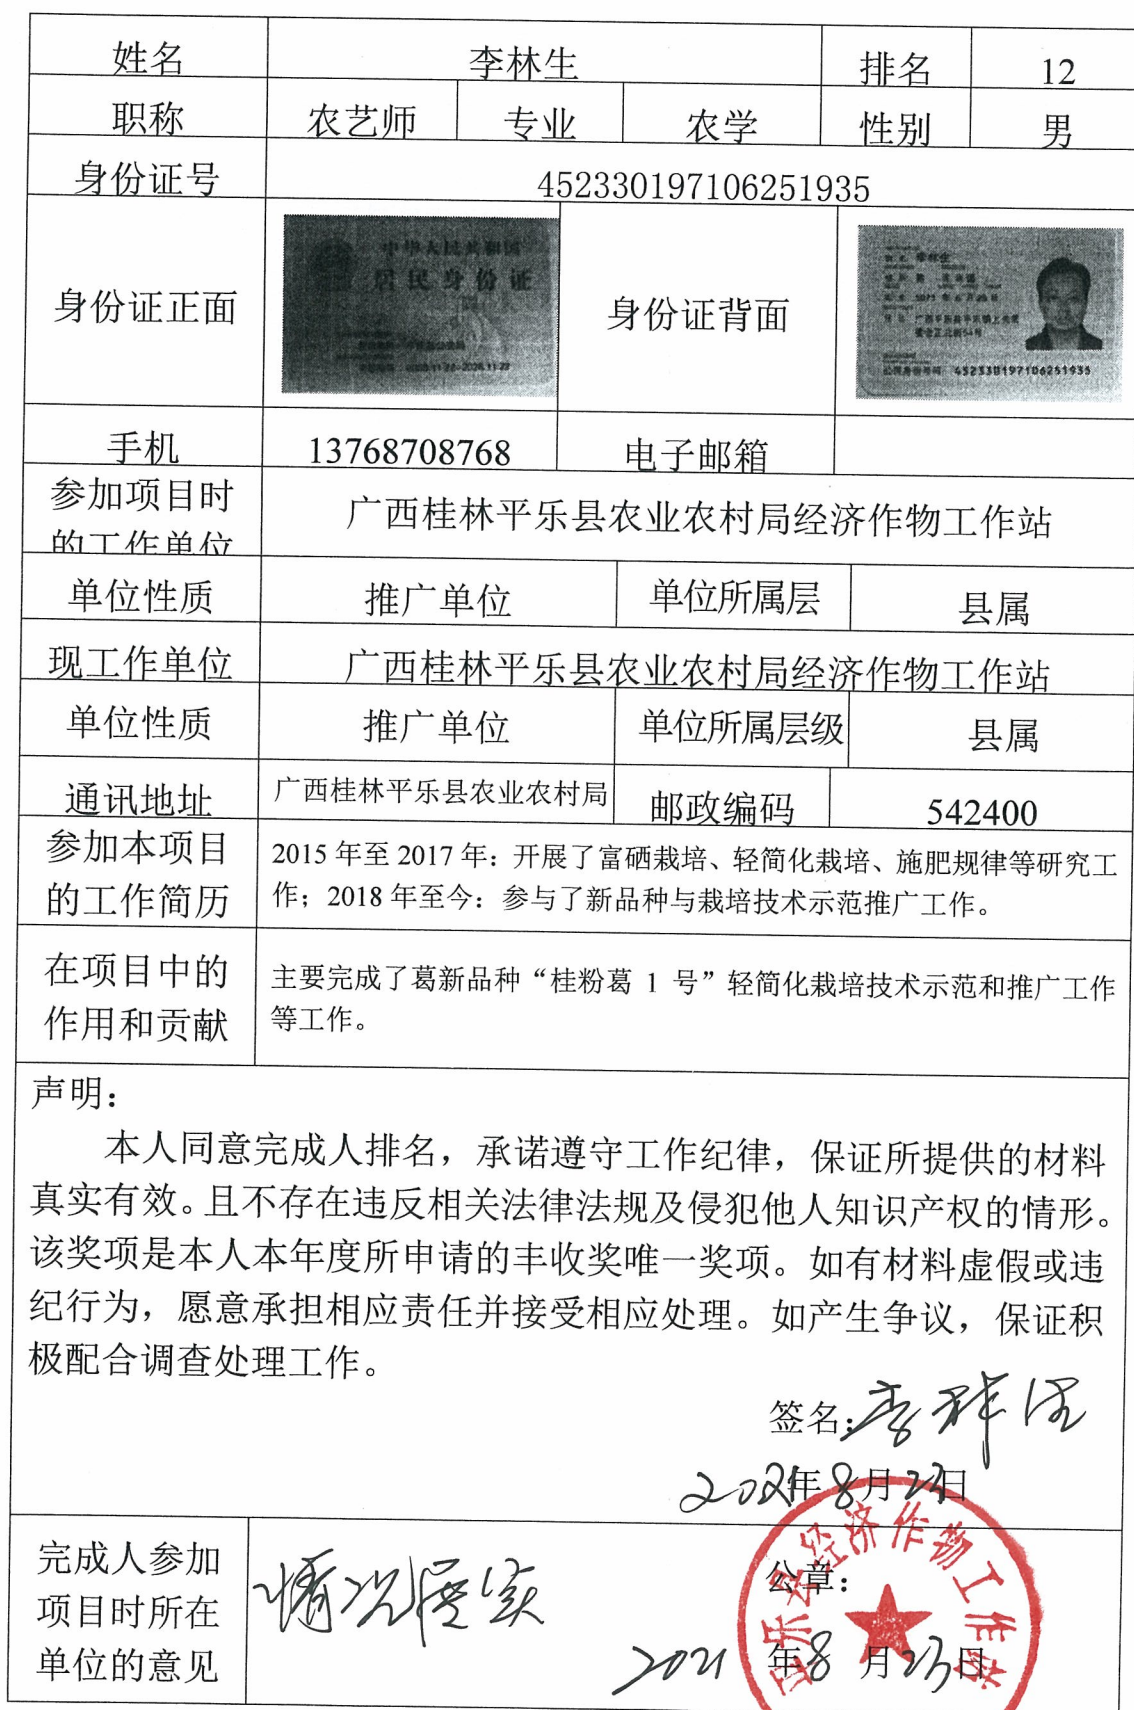 姓名 李林生 排名 12
职称 农艺师 专业 农学 性别 男
身份证号 452330197106251935
身份证正面 身份证背面
中华人民共和国
居民身份证
公民身份号码 452330197106251935
手机 13768708768 电子邮箱
参加项目时
的工作单位
广西桂林平乐县农业农村局经济作物工作站
单位性质 推广单位 单位所属层 县属
现工作单位 广西桂林平乐县农业农村局经济作物工作站
单位性质 推广单位 单位所属层级 县属
通讯地址 广西桂林平乐县农业农村局 邮政编码 542400
参加本项目
的工作简历
2015 年至 2017 年：开展了富硒栽培、轻简化栽培、施肥规律等研究工
作；2018 年至今：参与了新品种与栽培技术示范推广工作。
在项目中的
作用和贡献
主要完成了葛新品种“桂粉葛 1 号”轻简化栽培技术示范和推广工作
等工作。
声明：
本人同意完成人排名，承诺遵守工作纪律，保证所提供的材料
真实有效。且不存在违反相关法律法规及侵犯他人知识产权的情形。
该奖项是本人本年度所申请的丰收奖唯一奖项。如有材料虚假或违
纪行为，愿意承担相应责任并接受相应处理。如产生争议，保证积
极配合调查处理工作。
签名：李林生
2021年8月23日
完成人参加
项目时所在
单位的意见
情况属实
公章：
2021 年8 月23日
平乐县经济作物工作站